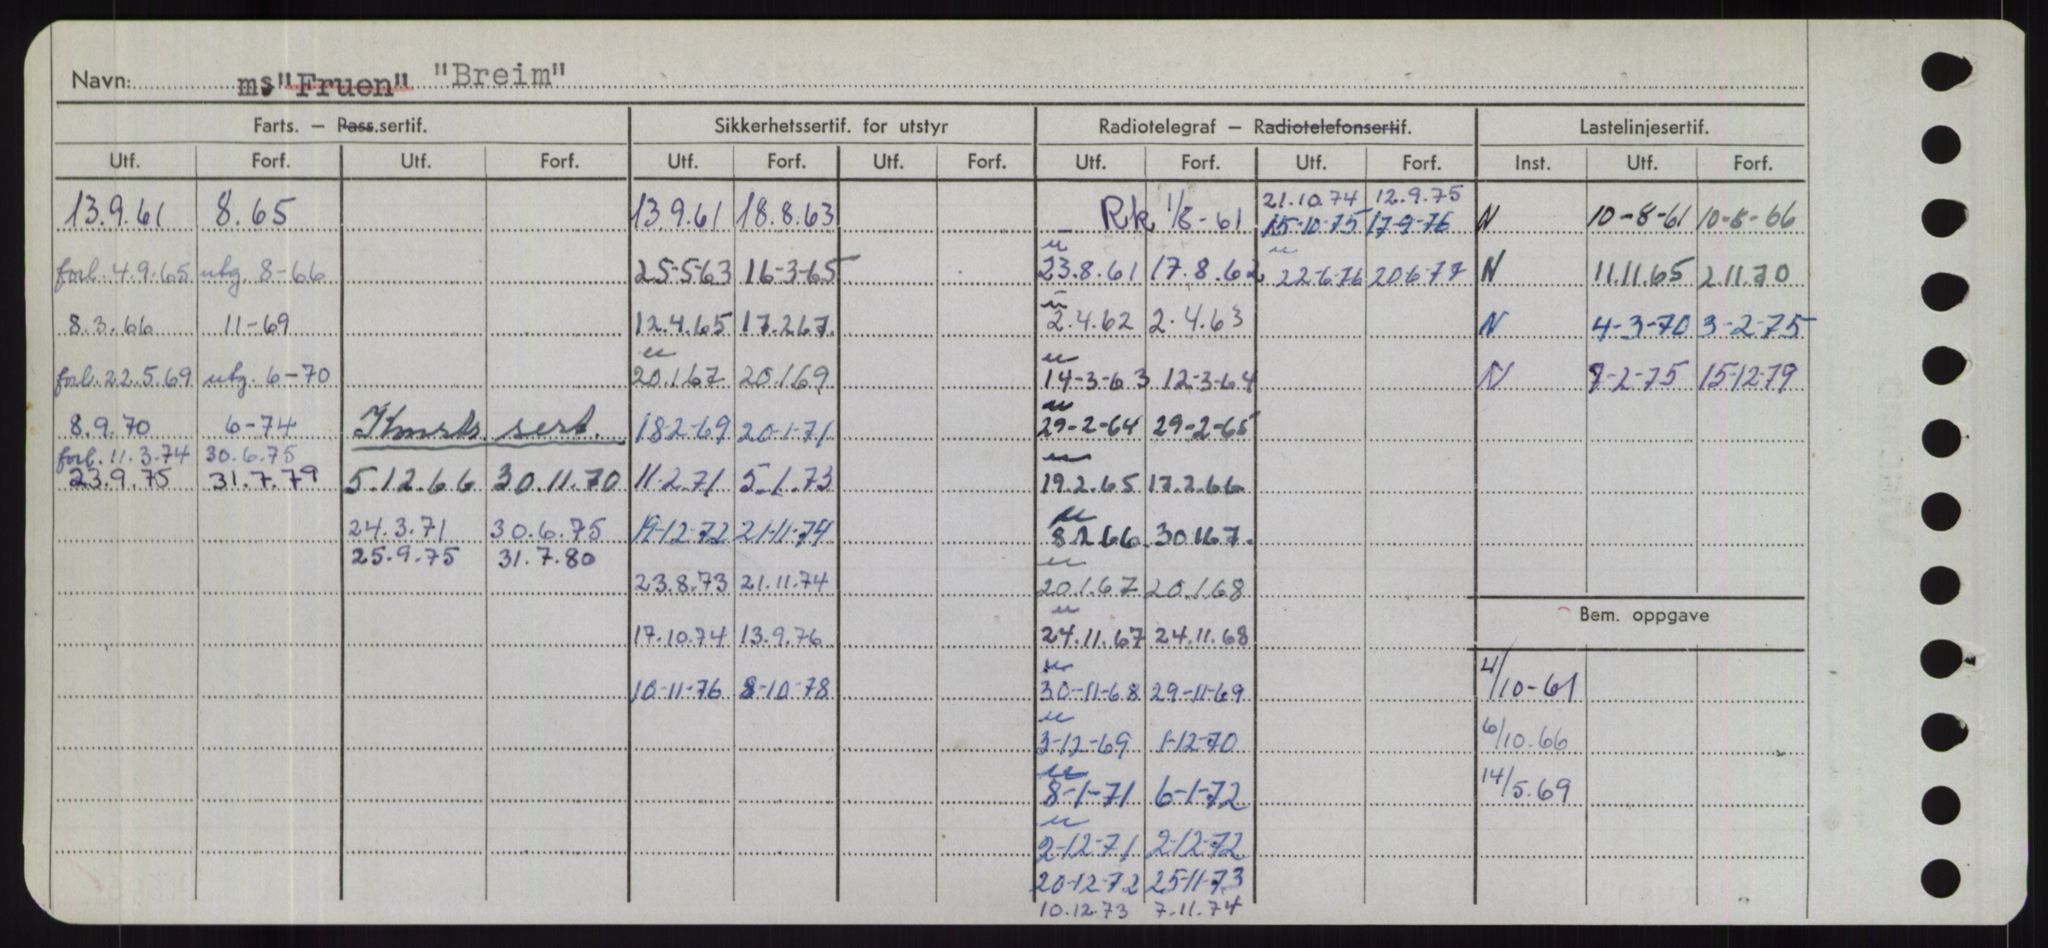 Navn: ms "Fruen" "Breim"
Farts. – Pass.sertif. Sikkerhetssertif. for utstyr Radiotelegraf – Radiotelefonsertif. Lastelinjesertif.
Utf. Forf. Utf. Forf. Utf. Forf. Utf. Forf. Utf. Forf. Utf. Forf. Inst. Utf. Forf.
21.10.74 12.9.75
13.9.61 8.65 13.9.61 18.8.63 Rk 1/8-61 15-10-75 17-9-76 N 10-8-61 10-8-66
u u
forl. 4.9.65 utg. 8-66 25-5-63 16-3-65 23.8.61 17.8.62 22-6-76 20-6-77 N 11.11.65 2.11.70
u
8.3.66 11-69 12.4.65 17.2.67. 2.4.62 2.4.63 N 4-3-70 3-2-75
u u
forl. 22.5.69 utg. 6-70 20.1.67 20.1.69 14-3-63 12-3-64 N 7-2-75 15-12-79
u
8.9.70 6-74 sert. 18-2-69 20-1-71 29-2-64 29-2-65
forl. 11.3.74 30.6.75
u
23.9.75 31.7.79 5.12.66 30.11.70 11-2.71 5.1.73 19.2.65 17.2.66
u
24.3.71 30.6.75 19-12-72 21-11-74 8.2.66 30.1.67.
25.9.75 31.7.80
u
23.8.73 21.11.74 20.1.67 20.1.68
u
Bem. oppgave
17.10.74 13.9.76 24.11.67 24.11.68
u
10-11-76 8-10-78 30-11-68 29-11-69 4/10-61
u
3-12-69 1-12-70 6/10.66
u
8-1-71 6-1-72 14/5.69
u
2-12-71 2-12-72
20-12-72 25-11-73
10.12.73 7.11.74